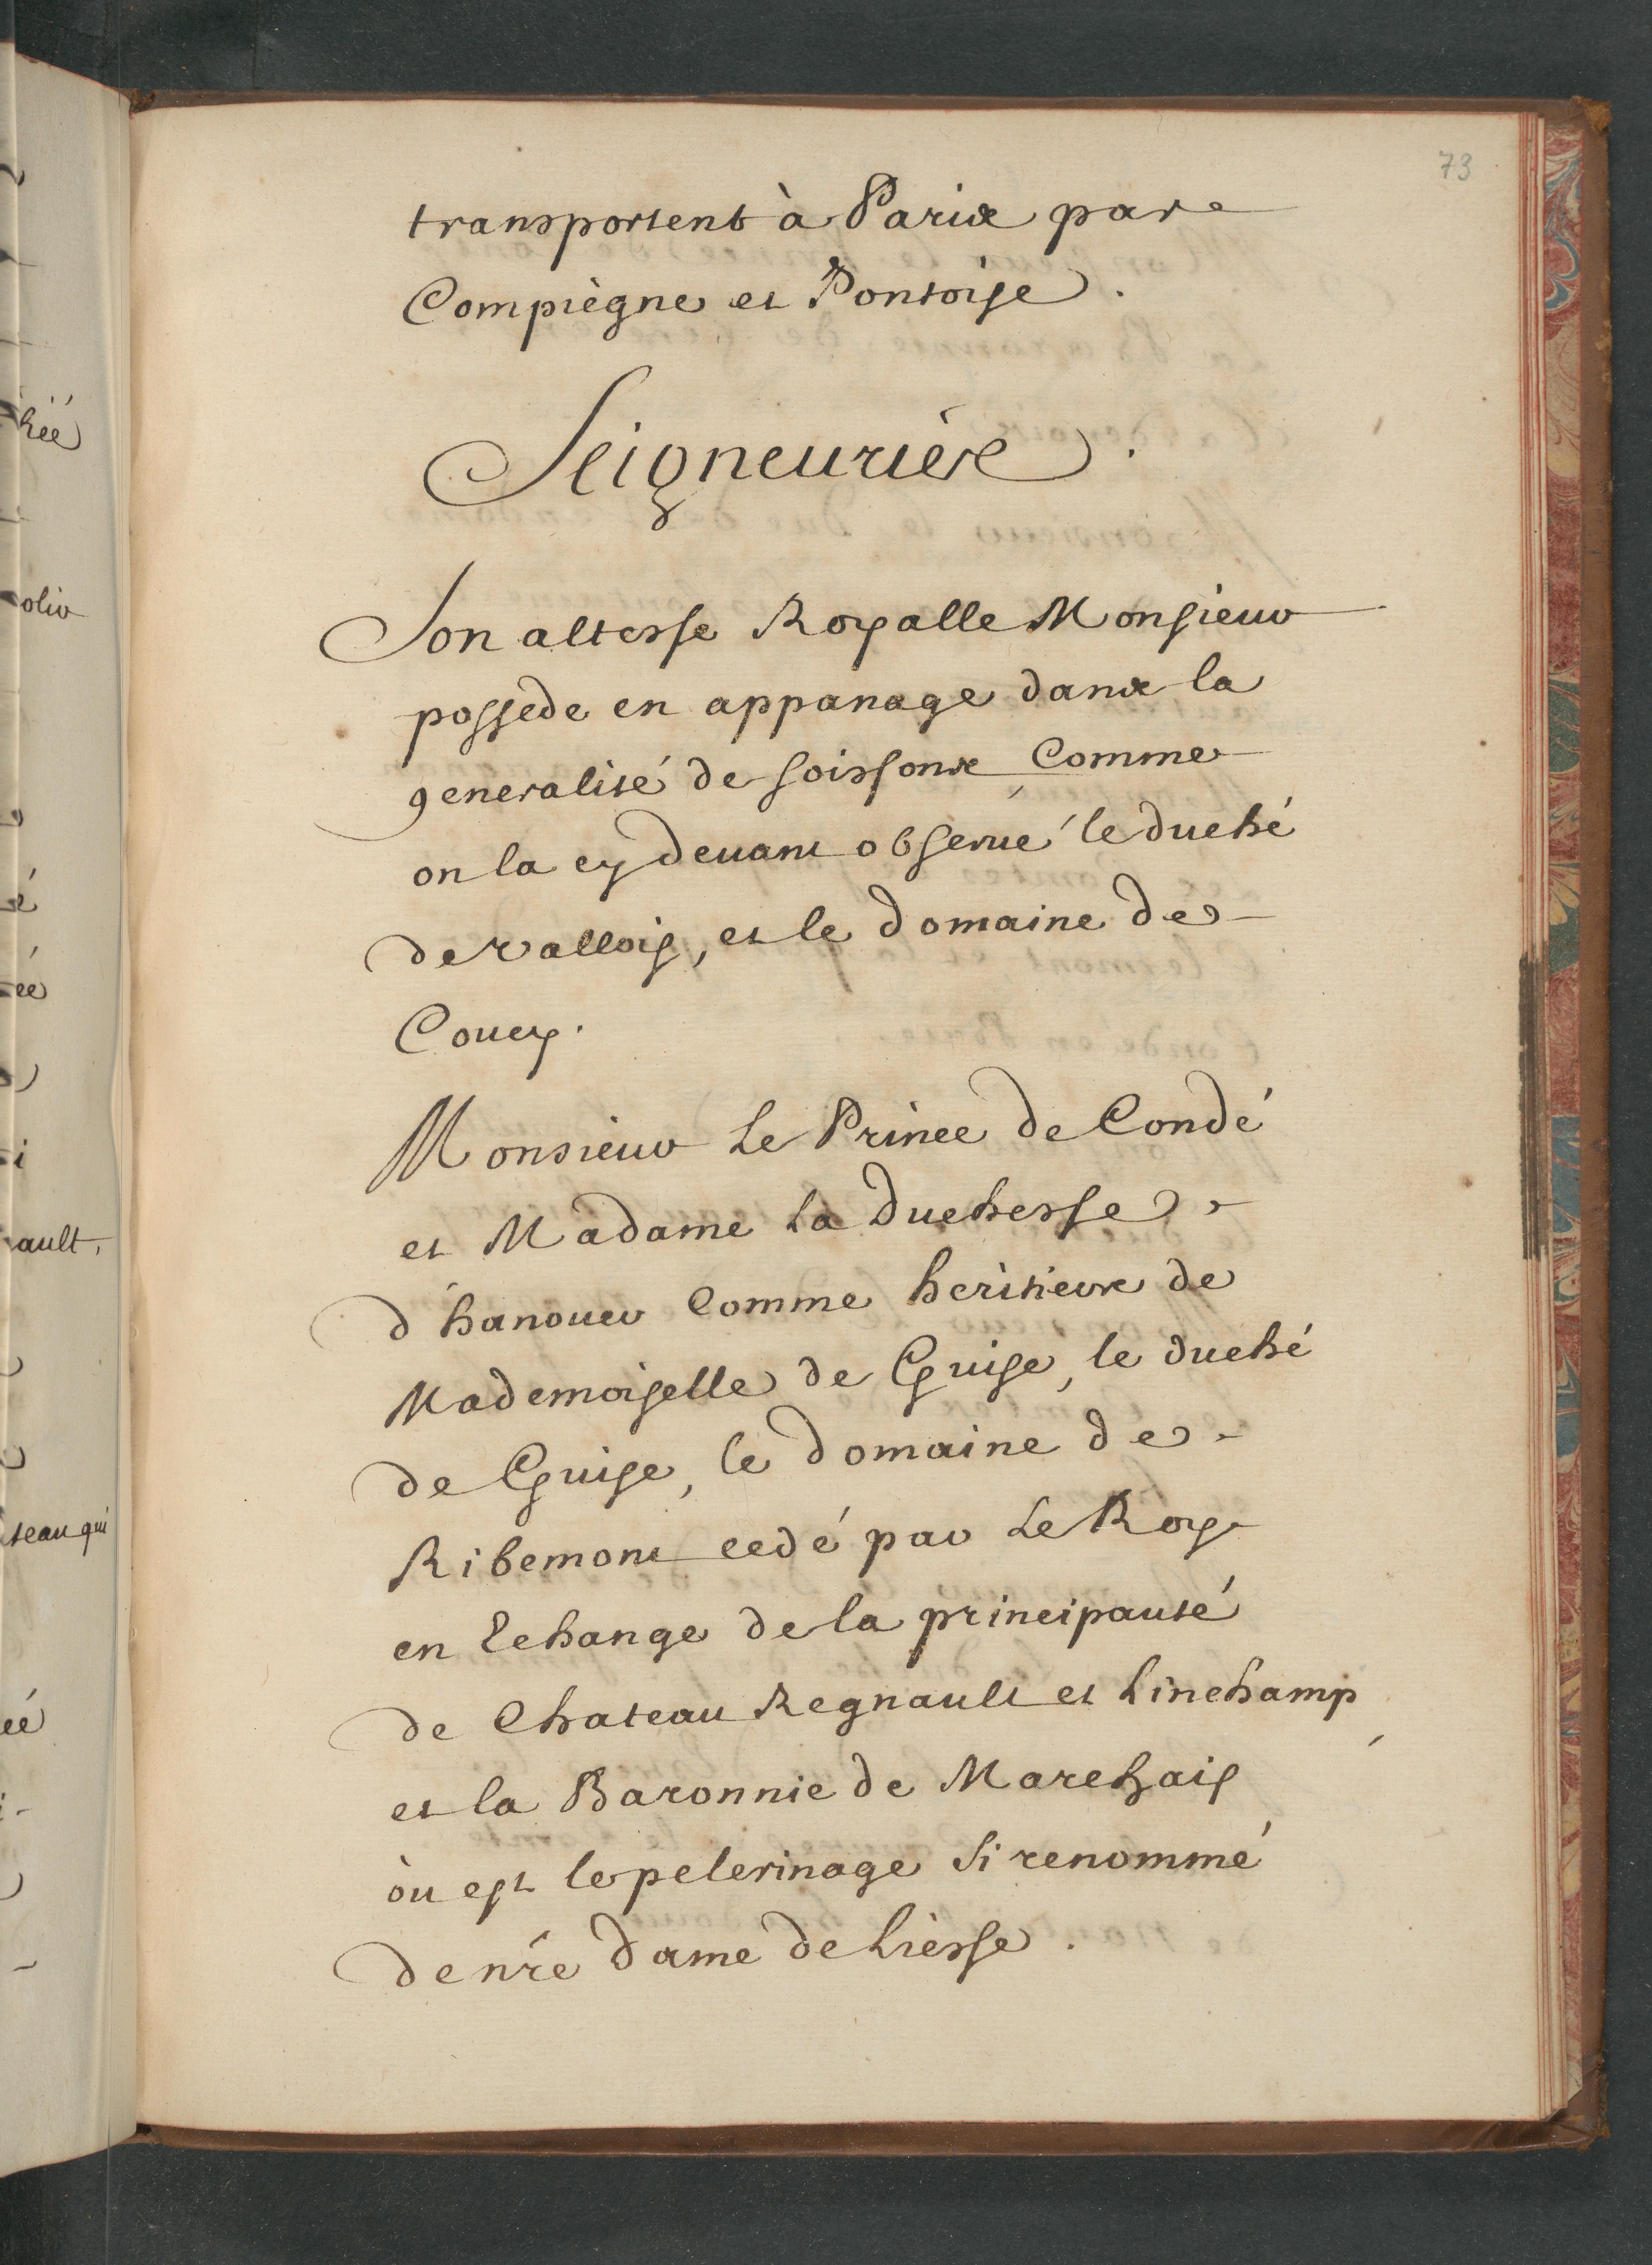 73
transportent à Paris par
Compiègne et Pontoise.
Seigneuries.
Son altesse Royalle Monsieur
possede en appanage dans la
generalité de soissons, Comme
on la cy deuant obserué le duché
de vallois, et le domaine de
Coucy.
Monsieur Le Prince de Condé
et Madame La Duchesse
d'hanouer Comme heritiers de
Mademoiselle de Guise, le duché
de Guise, le domaine de
Ribemont cedé par Le Roy
en Echange de la principauté
de Chateau Regnault et Linchamp,
et la Baronnie de Marchais
òu est le pelerinage si renommé
de nr̃e dame de Liesse.
hée
olir
é
ée
i
ault,
teau qui
ée